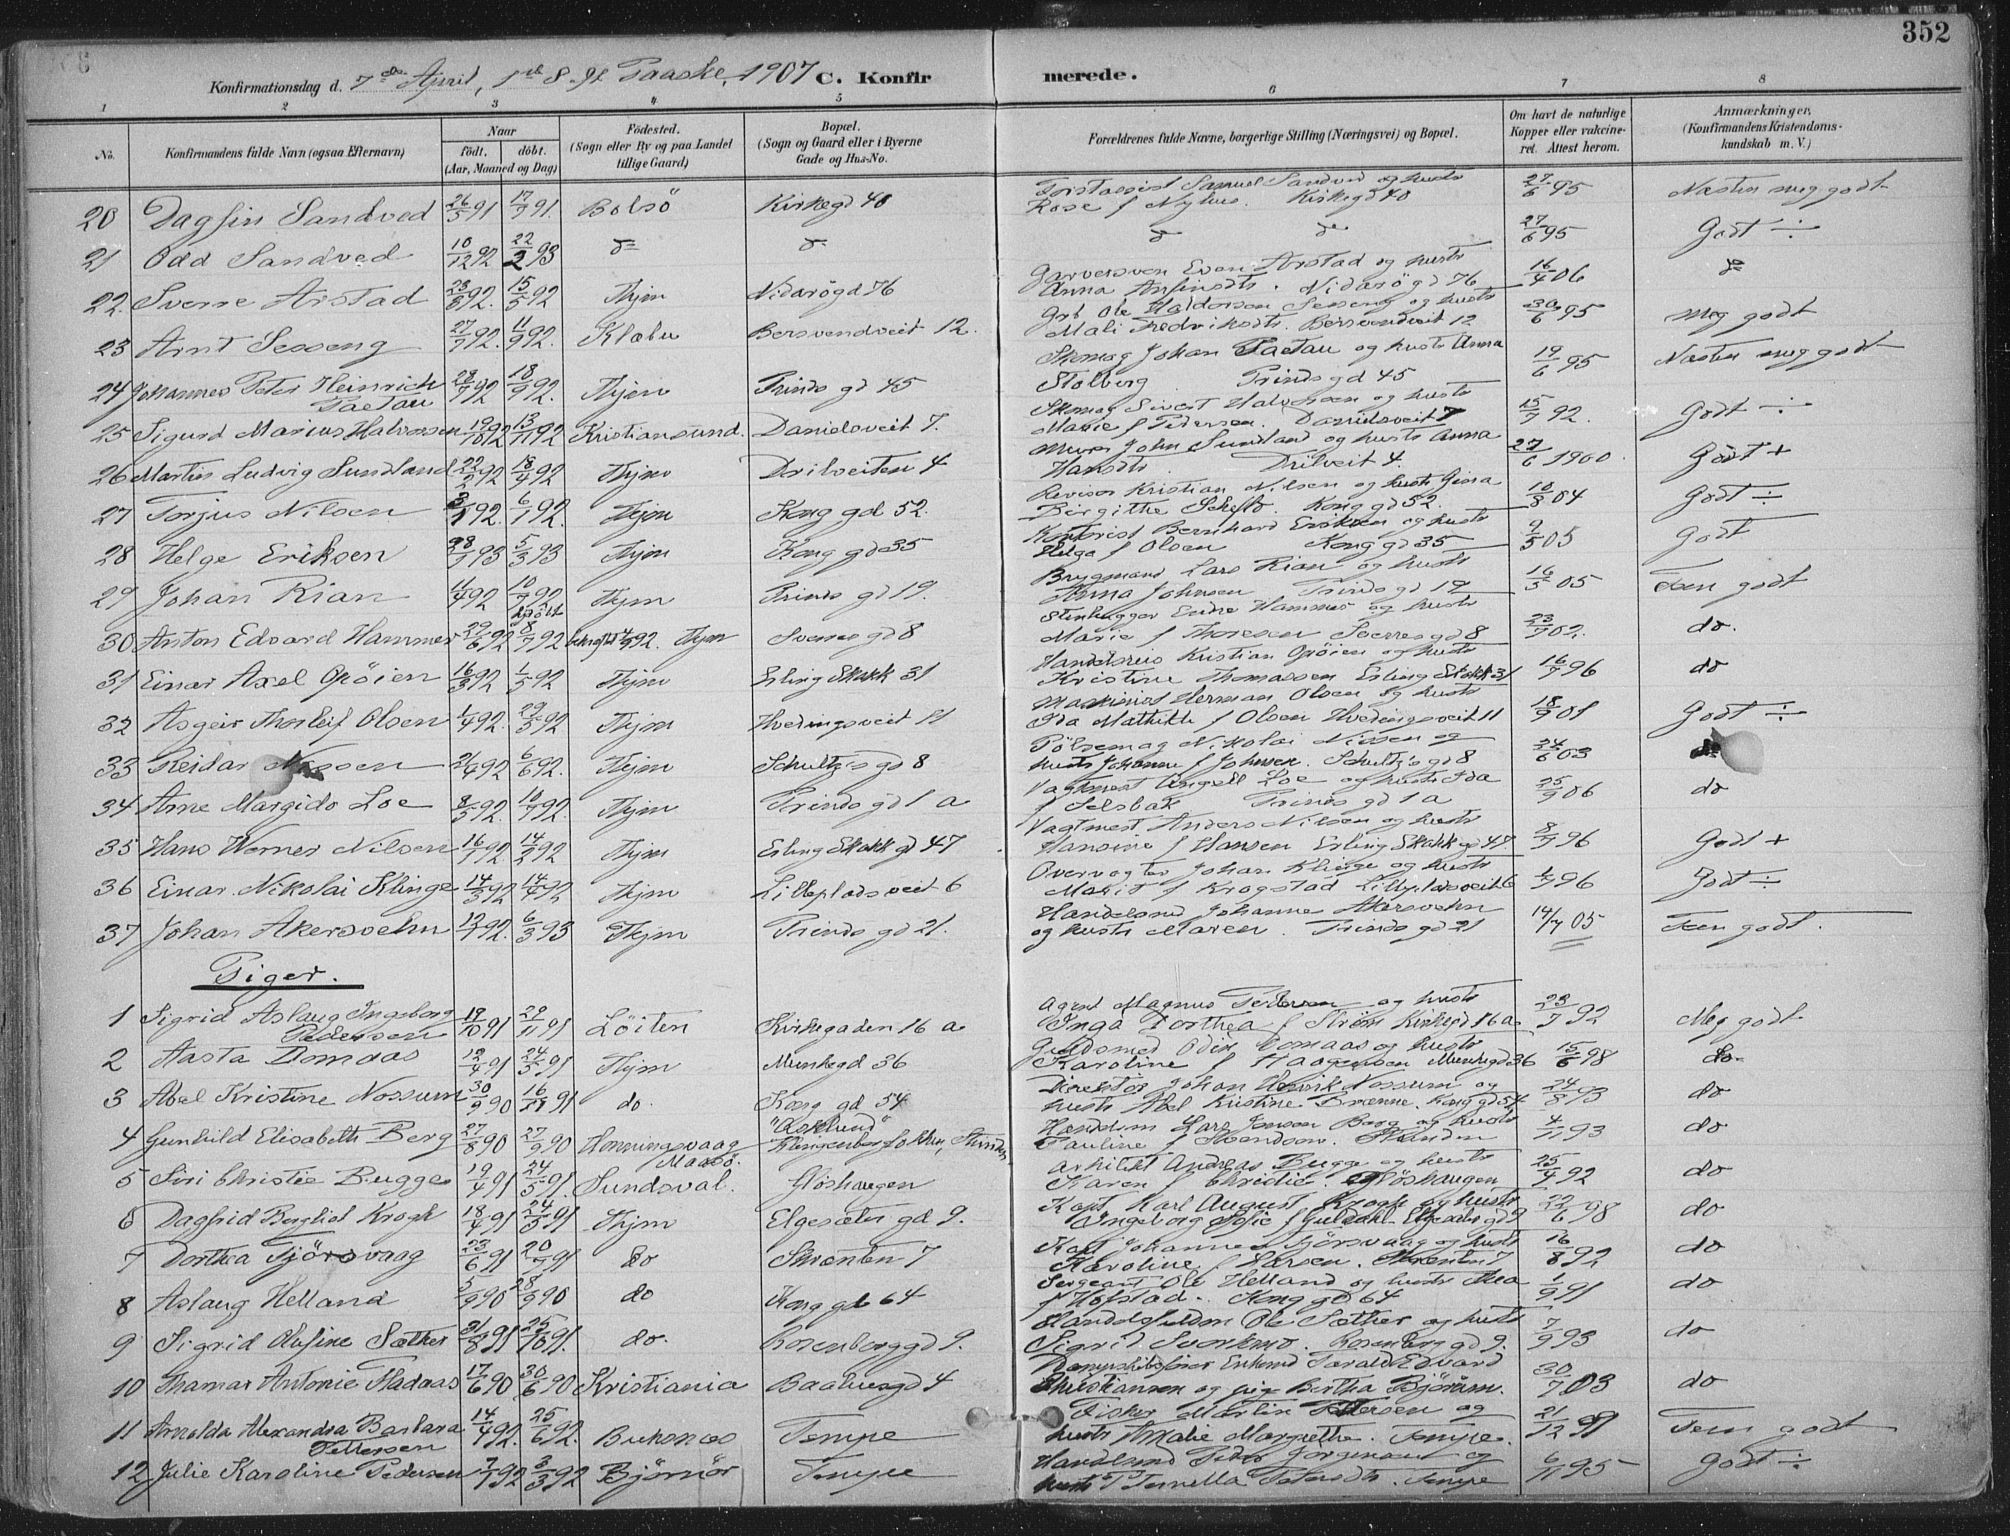 352
Konfirmationsdag d. 7de April, 1ste S. e. Paaske, 1907 C. Konfirmerede.
1 2 3 4 5 6 7 8
No. Konfirmandens fulde Navn (ogsaa Efternavn) Naar födt. döbt. (Aar, Maaned og Dag) Födested. (Sogn eller By og paa Landet tillige Gaard) Bopæl. (Sogn og Gaard eller i Byerne Gade og Hus-No. Forældrenes fulde Navne, borgerlige Stilling (Næringsvei) og Bopæl. Om havt de naturlige Kopper eller vakcineret. Attest herom. Anmærkninger, (Konfirmandens Kristendomskundskab m. V.)
20 Dagfin Sandved 26/5 91 17/9 91. Bolsö Kirkegd 40 Samuel Sandved og hustr Rose f Nyhus. Kirkegd 40 27/6 95 Næsten meg godt
21 Odd Sandved 10/12 92 22/2 93 do do do do 27/6 95 Godt ÷
22. Sverre Arstad 15/5 92 Thjm Nidarögd 76 Garversven Even Arstad og hustr Anna Arnfinsdtr. Nidarögd 76 16/4 06 do
23 Arnt Sesseng 27/7 92. 11/9 92. Klæbu Bersvendveit 12. Arb Ole Haldorsen Sesseng og hustr Mali Fredriksdtr. Bersvendveit 12 30/6 95 meg godt
24 Johannes Peter Heinrich Paetau 28/7 92 18/9 92. Thjm Prinds gd 45 Skomag Johan Paetau og hustr Anna Stolberg Prinds gd 45 19/6 95 Næsten meg godt
25 Sigurd Marius Halvorsen 19/10 92 13/11 92 Kristiansund. Danielsveit 7. Skomag Sivert Halvorsen og hustr Marie f Pedersen. Danielsveit 7 15/7 92. Godt ÷
26 Martin Ludvig Sundland 22/2 92 18/4 92 Thjm Drilveiten 4 Murer John Sundland og hustr Anna Hansdtr Drilveit 4. 27/6 1900. Godt +
27 Torjus Nilsen 3/1 92. 6/1 92. Thjm Kong gd 52. Revisor Kristian Nilsen og hustr Gina Birgithe Kong gd 52. 10/8 04 Godt ÷
28 Helge Eriksen 28/1 93 5/3 93 Thjm Kong gd 35 Kontorist Bernhard Eriksen og hustr Helga f Olsen Kong gd 35 9/5 05 Godt
29 Johan Rian 4/4 92 10/7 92 Thjm Prinds gd 19. Brygmand Lars Rian og hustr Anna Johnsen Prinds gd 19 16/3 05 Tem godt
30 Anton Edvard Hammer 29/6 92 18/7 92 Thjm Sverres gd 8 Stenhugger Endre Hammer og hustr Marie f Thoresen Sverres gd 8 23/9 02. do.
31 Einar Axel Opöien 16/3 92 1/5 92 Thjm Erling Skakk 31 Handelsreis Kristian Opöien og hustr Kristine Thomassen Erling Skakk 31 16/9 96 do
32 Asgeir Thorleif Olsen 1/4 92. 29/5 92 Thjm Hvedingsveit 11 Maskinist Herman Olsen og hustr Ida Mathilde f Olsen Hvedingsveit 11 18/9 01 Godt ÷
33 Reidar Nissen 21/4 92 6/6 92. Thjm Schultz's gd 8 Pölsemag Nikolai Nissen og hustr Johanne f Johnsen. Schultz's gd 8 24/6 03
34 Arne Margido Loe 8/5 92. 10/7 92. Thjm Prinds gd 1 a Vagtmest Angell Loe og hustr Ida f Selsbak Prinds gd 1 a 25/9 06 do
35 Hans Werner Nilsen 16/1 92 14/2 92 Thjm Erling Skakk gd 47 Vagtmest Anders Nilsen og hustr Hansine f Hansen Erling Skakk gd 47 8/9 96 Godt +
36 Einar Nikolai Klinge 14/3 92 14/4 92 Thjm Lilleplads veit 6 Overvagter Johan Klinge og hustr Marit f Krogstad Lillepladsveit 6 1/9 96 Godt ÷
37 Johan Akersvehn 12/7 92. 6/3 93 Thjm Prinds gd 21. Handelsmd Johannes Akersvehn og hustr Maren. Prinds gd 21 14/7 05 Tem godt.
Piger.
1 Sigrid Aslaug Ingeborg Pedersen 18/10 91 29/11 91 Löiten Kirkegaden 16 a Agent Magnus Pedersen og hustr Inga Dorthea f Ström Kirkegd 16 a 23/9 92 Meg godt
2 Aasta Domaas 12/4 91 24/5 91 Thjm Munkegd 36 Guldsmed Odin Domaas og hustr Karoline f Haagensen Munkegd 36 15/6 98 do
3 Abel Kristine Nossum 30/9 90 16/11 91 do. Kong gd 54 Direktör Johan Henrik Nossum og hustr Abel Kristine Brænne. Kong gd 54 24/8 93 do
4 Gunhild Elisabeth Berg 27/8 90 27/9 90 Honningsvaag Maasö. "Asklund" Klingenberg Lökken, Strinden Handelsm Lars Jensen Berg og hustr Pauline f Svendsen. Strinden 4/11 93 do
5 Siri Christie Bugge 19/4 91 24/5 91. Sundsval. Glöshaugen Arkitekt Andreas Bugge og hustr Karen f Christie. Glöshaugen 25/4 92 do
6 Dagfrid Bergliot Krogh 18/4 91 24/5 91 Thjm Elgesæter gd 9. Kapt Karl August Krogh og hustr Ingeborg Sofie f Guldahl Elgesæter gd 9 22/6 98 do
7 Dorthea Tjörsvaag 23/6 91 20/9 91 do Skrænten 7 Kapt Johannes Tjörsvaag og hustr Karoline f Larsen. Skrænten 7 16/8 92 do
8 Aslaug Helland 5/9 90 28/9 90 do Kong gd 64 Sergeant Ole Helland og hustr Thea f Hofstad. Kong gd 64 1/9 91 do
9 Sigrid Olufine Sæther 31/8 91 25/10 91. do. Rosenborg gd 9. Ole Sæther og hustr Sigrid Svorkmo. Rosenborg gd 9. 7/9 93 do
10 Thamar Antonie Fladaas 17/6 90 30/6 90 Kristiania Baahusgd 4 Dampskibsförer Enkemd Tarald Edvard Christiansen og pige Bertha Björum. 30/7 03 do
11 Arnolda Alexandra Barbara Pettersen 14/4 92. 25/6 92. Buksnes Tempe Fisker Martin Pettersen og hustr Amalie Margrethe. Tempe. 21/12 91 Tem godt
12 Julie Karoline Pedersen 7/1 92 3/3 92 Björnör Tempe Handelsmd Peder Jörgensen og hustr Pernella Petersdtr. Tempe 6/11 95 Godt ÷